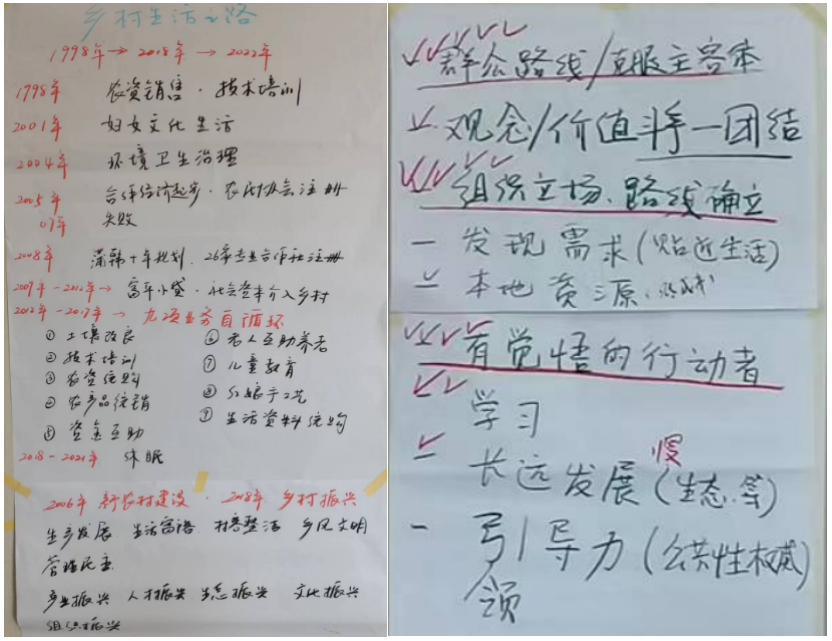 乡村生活之路
1998年→2018年→2022年
1998年 农资销售·技术培训
2001年 妇女文化生活
2004年 环境卫生治理
2005年 合作经济起步·农民协会注册
07年 失败
2008年 蒲韩十年规划·26家专业合作社注册
2009年-2012年→富平小贷·社会资本介入乡村
2012年-2017年→九项业务自循环
① 土壤改良
② 技术培训
③ 农资统购
④ 农产品统销
⑤ 资金互助
⑥ 老人互助养老
⑦ 儿童教育
⑧ 红娘手工艺
⑨ 生活资料统购
2018-2021年 休眠
2006年 新农村建设·2018年 乡村振兴
生产发展 生活富裕 村容整洁 乡风文明
管理民主
产业振兴 人才振兴 生态振兴 文化振兴
组织振兴
群众路线/克服主客体
观念/价值 斗争—团结
组织立场、路线确立
发现需求(贴近生活)
本地资源
有觉悟的行动者
学习
慢
长远发展(生态.等)
引导力(公共性权威)
领